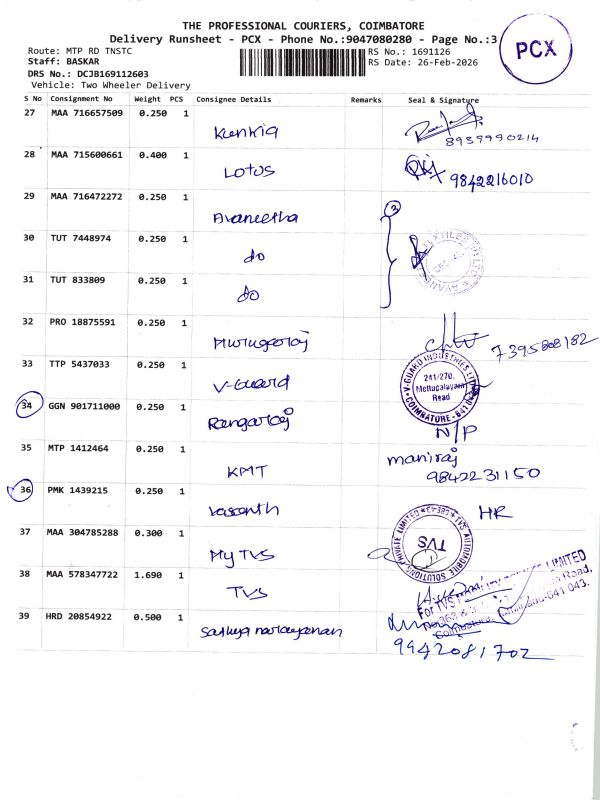 THE PROFESSIONAL COURIERS, COIMBATORE
Delivery Runsheet - PCX - Phone No.:9047080280 - Page No.:3
PCX
Route: MTP RD TNSTC
RS No.: 1691126
Staff: BASKAR
RS Date: 26-Feb-2026
DRS No.: DCJB169112603
Vehicle: Two Wheeler Delivery
S No Consignment No Weight PCS Consignee Details Remarks Seal & Signature
27 MAA 716657509 0.250 1
8939990214
28 MAA 715600661 0.400 1 Lotus
9842216010
29 MAA 716472272 0.250 1 Avaneetha
3
30 TUT 7448974 0.250 1 do
31 TUT 833809 0.250 1 do
32 PRO 18875591 0.250 1 Murugaraj
7395808182
33 TTP 5437033 0.250 1 V-Guard
V-GUARD INDUSTRIES LTD
241/270,
Mettupalayam
Road
COIMBATORE - 641
34 GGN 901711000 0.250 1 Rangaraj
N/P
35 MTP 1412464 0.250 1 KMT
maniraj
9842231150
36 PMK 1439215 0.250 1 Vasanth
HR
37 MAA 304785288 0.300 1 My TVS
TVS AUTOMOBILE SOLUTIONS PRIVATE LIMITED
TVS
38 MAA 578347722 1.690 1 TVS
For TVS
LIMITED
Road,
Coimbatore-641 043.
39 HRD 20854922 0.500 1 Sathya narayanan
9942081702